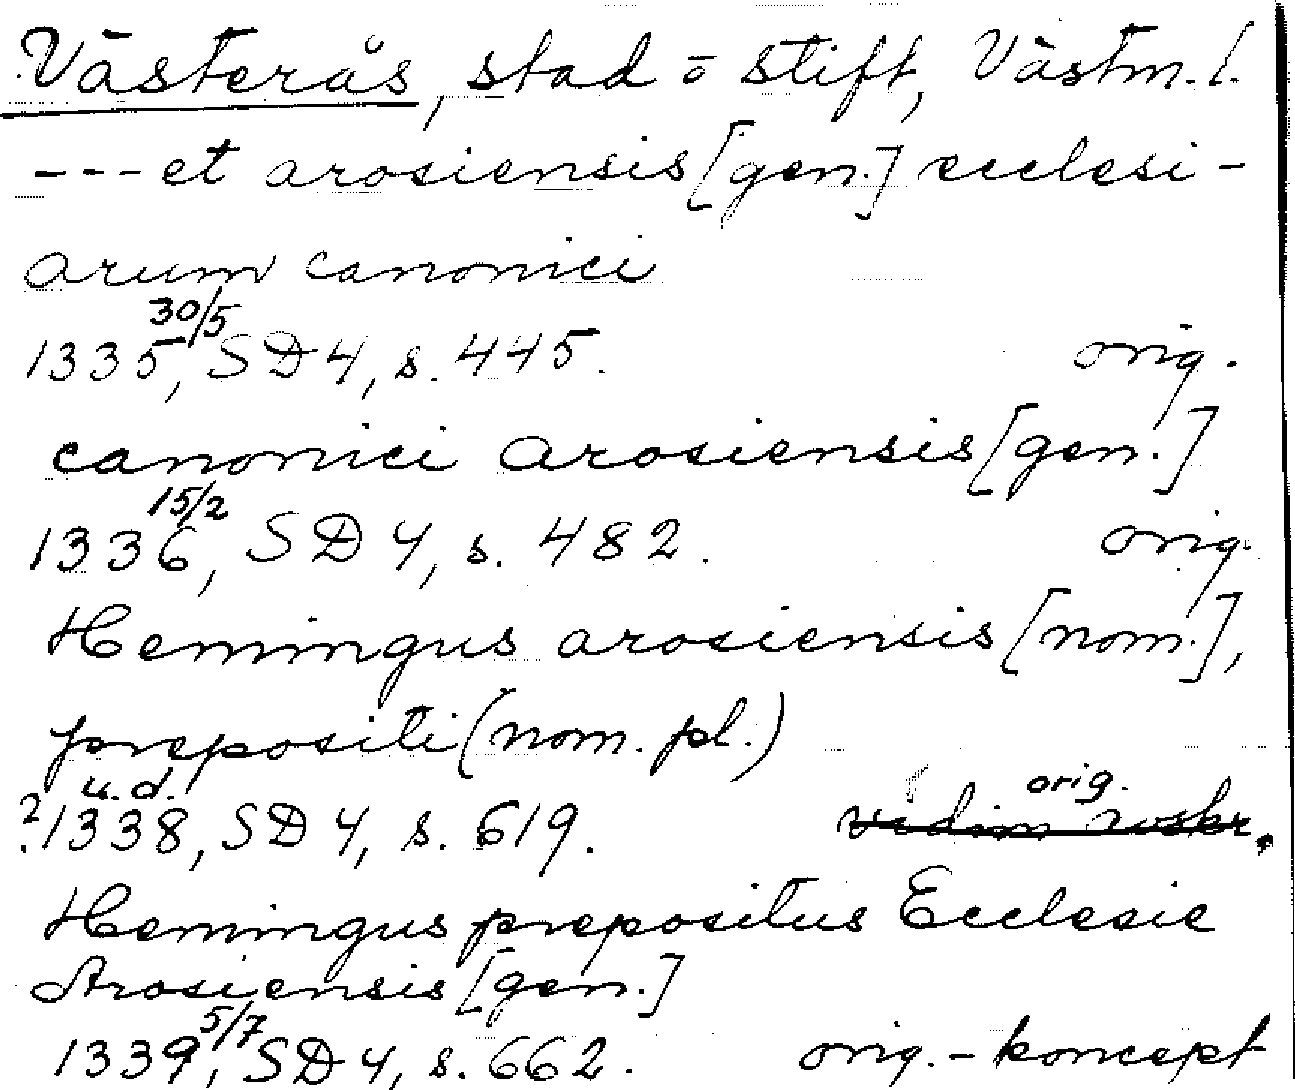 Västerås, stad o stift, Västm. l.
--- et arosiensis [gen.] ecclesi-
arum canonici
1335 30/5, SD 4, s. 445. orig.
canonici arosiensis [gen.]
1336 15/2, SD 4, s. 482. orig.
Hemingus arosiensis [nom.],
prepositi (nom. pl.)
?1338 u.d., SD 4, s. 619. orig.
Hemingus prepositus Ecclesie
Arosiensis [gen.]
1339 5/7, SD 4, s. 662. orig.-koncept